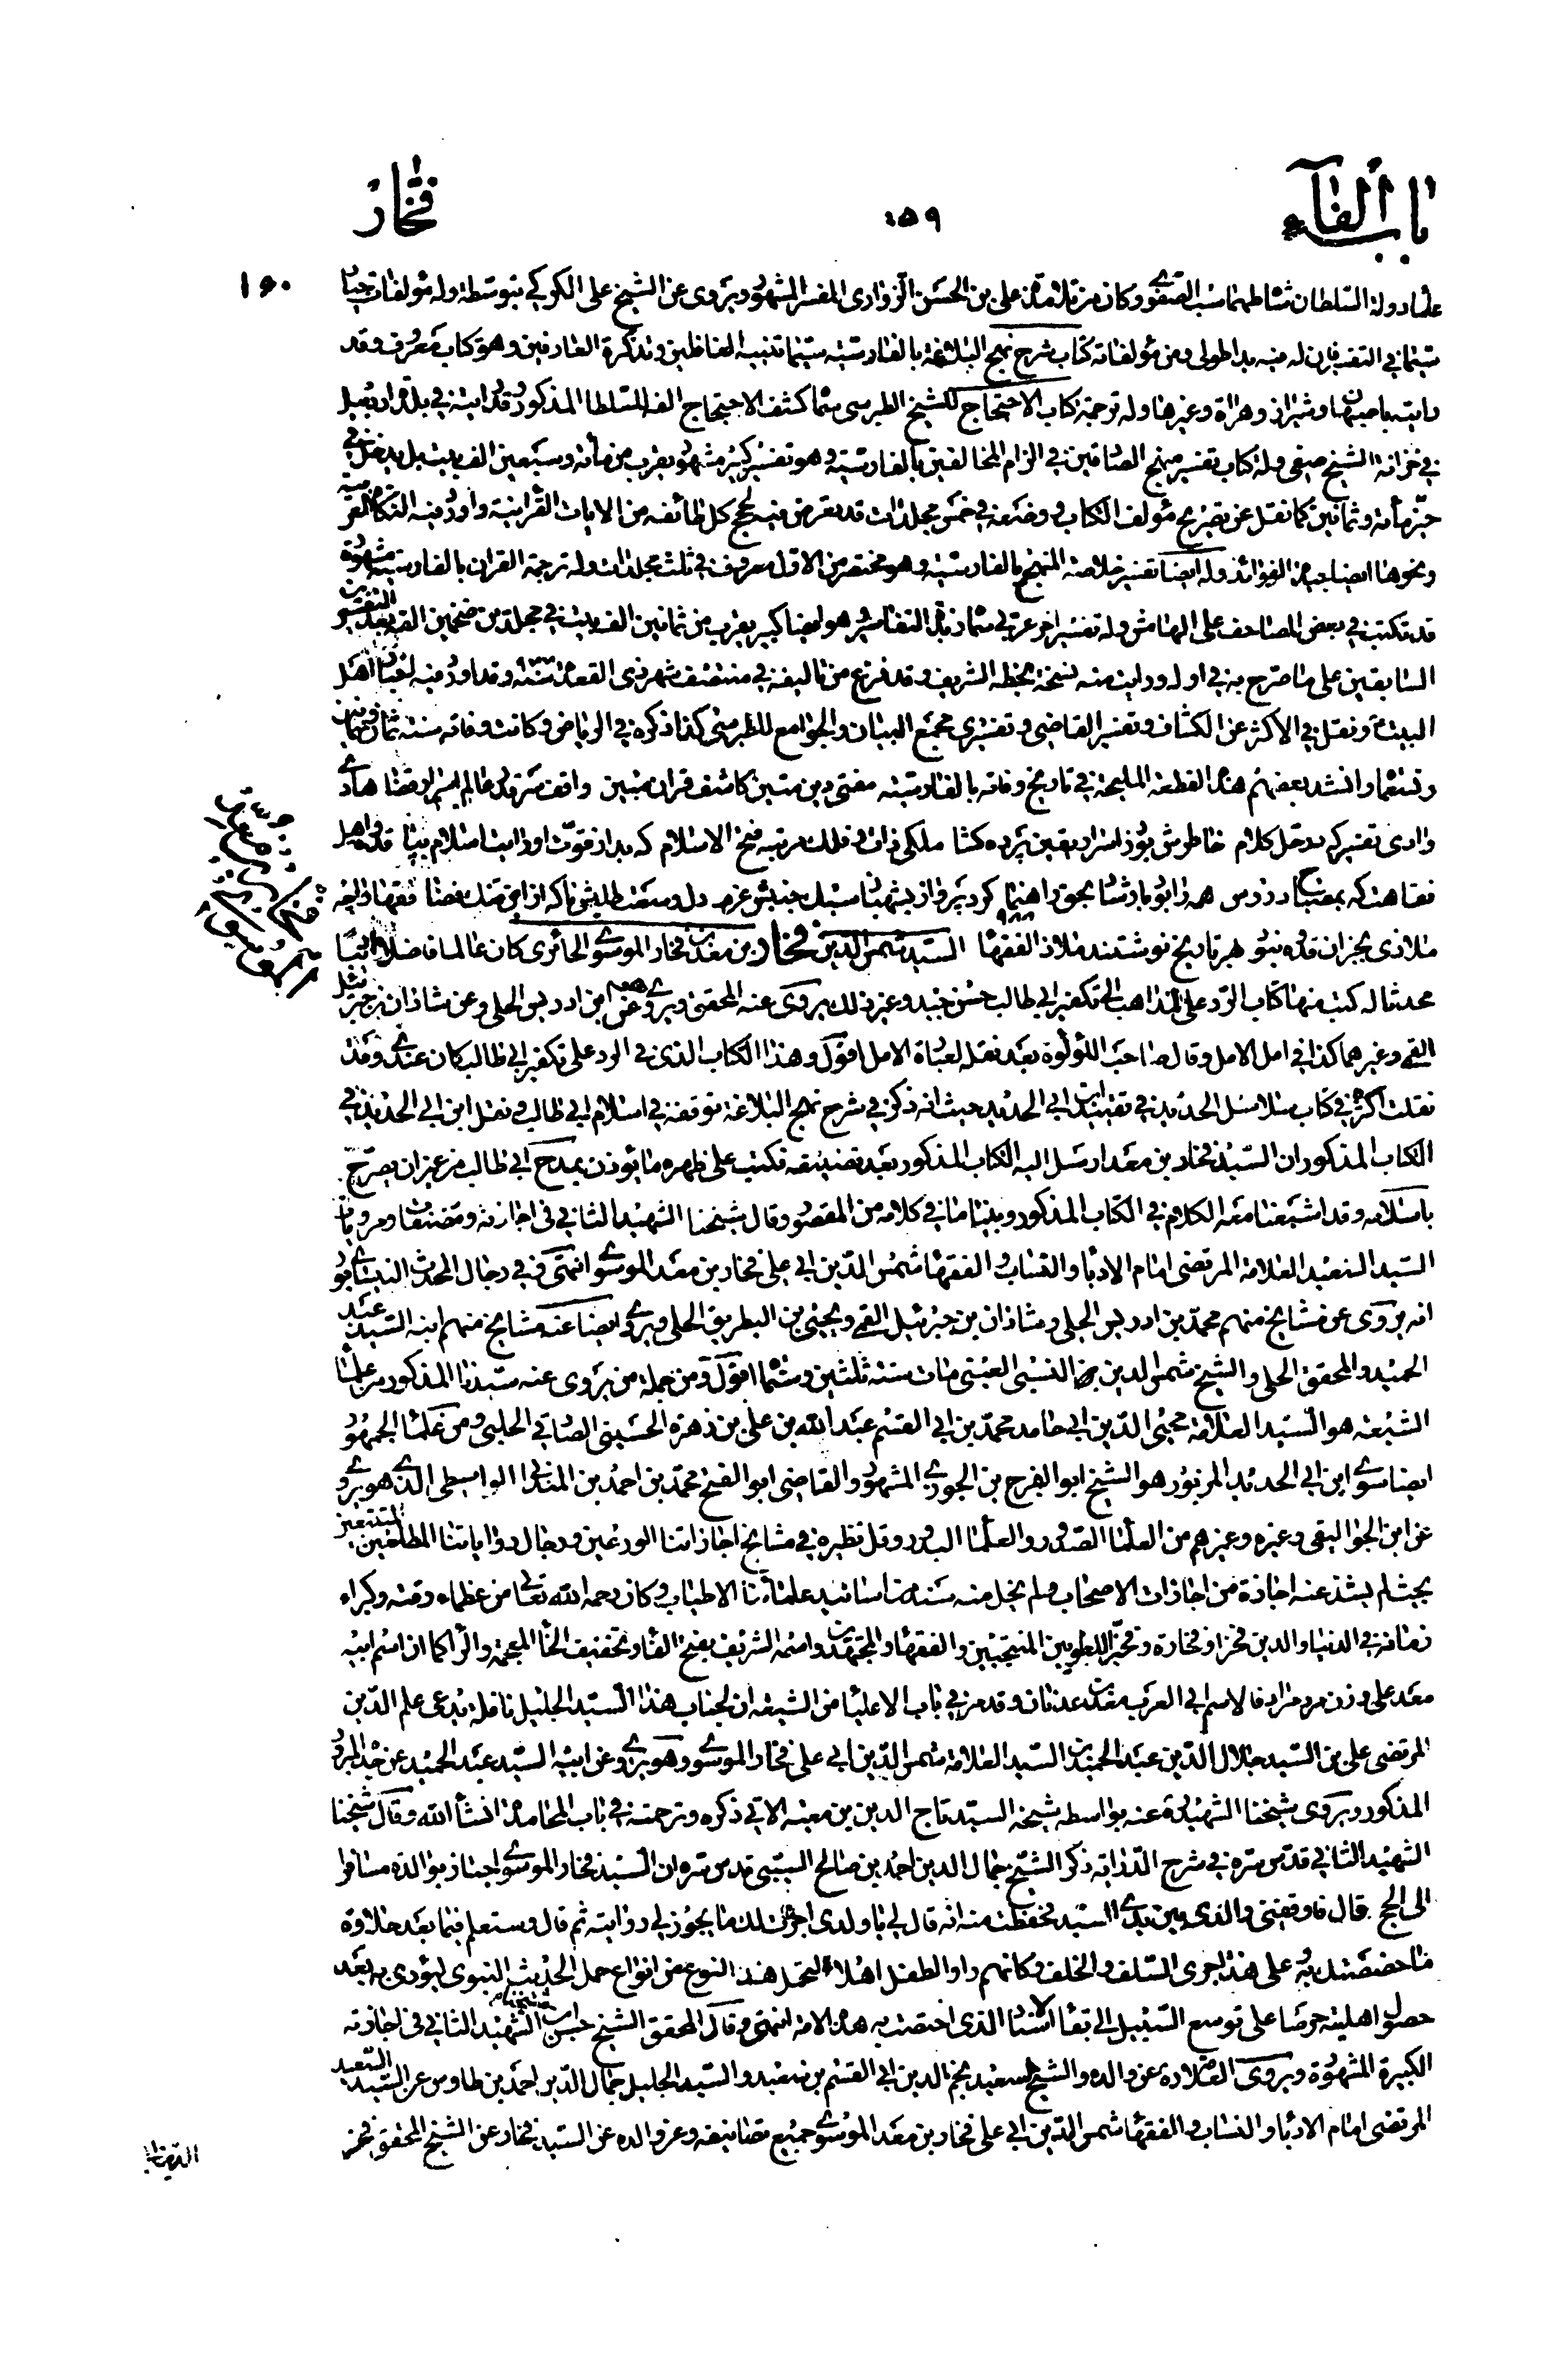 باب الفآء
٥٠٩
فخار
١٥٠
علماء دولة السلطان شاه طهماسب الصفوي وكان من تلامذة علي بن الحسن الزواري المفسر المشهور ويروى عن الشيخ علي الكركي بتوسطه وله مؤلفات جياد
سيّما في التفسير فان له فيه يدا طولى ومن مؤلفاته كتاب شرح نهج البلاغة بالفارسية سيّما تنبيه الغافلين وتذكرة العارفين وهو كتاب معروف وقد
رايته باصبهان وشيراز وهراة وغيرها وله ترجمة كتاب الاحتجاج للشيخ الطبرسي سماه كشف الاحتجاج الفه للسلطان المذكور وقد رايته في بلدة اردبيل
في خزانة الشيخ صفي وله كتاب تفسير منهج الصادقين في الزام المخالفين بالفارسية وهو تفسير كبير مشهور يقرب من مأة وسبعين الف بيت بل يدخل في
حيّز مأة وثمانين كما نقل عن تصريح مؤلف الكتاب ووضعه في خمس مجلدات قد تعرض فيه لحجج كل طائفة من الايات القرانية واورد فيه النكات العربية
ونحوها ايضا جياد الفوائد وله ايضا تفسير خلاصة المنهج بالفارسية وهو مختصر من الاول معروف في ثلث مجلدات وله ترجمة القران بالفارسية مشهورة
قد تكتب في بعض المصاحف على الهامش وله تفسير اخر عربي سماه زبدة التفاسير وهو ايضا كبير يقرب من ثمانين الف بيت في مجلدين ضخمين الفه بعد التفسيرين
السابقين على ما صرح به في اوله ورايت منه نسخة بخطه الشريف وقد فرغ من تاليفه في منتصف شهر ذي القعدة سنة ٩٧٧ وقد اورد فيه اخبار اهل
البيت ع ونقل في الاكثر عن الكشاف وتفسير القاضي وتفسيري مجمع البيان والجوامع للطبرسي كذا ذكره في الرياض وكانت وفاته سنة ثمان وثمانين
وتسعمأة وانشد بعضهم هذه القطعة المليحة في تاريخ وفاته بالفارسية مفتي دين متين كاشف قران مبين واقف سر قدر عالم اسرار قضا هادي
وادي تفسير كه در حل كلام خاطرش بود ز اسرار يقين پرده كشا ملكي ذات وفلك مرتبه فتح الاسلام كه بد از قوت او رايت اسلام بپا قدوه اهل
فقاهت كه بمفتاح دروس همه را بود بارشاد بحق راهنما كرد پرواز بشهباز سبك جنبش عزم دل وسعت طلبش تا كه از اين تنك فضا فقها را چه
ملاذي بجز آن قدوه نبود بهر تاريخ نوشتند ملاذ الفقهاء ٩٨٨ السيد شمس الدين فخار بن معد بن فخار الموسوي الحائري كان عالما فاضلا اديبا
محدثا له كتب منها كتاب الرد على الذاهب الى تكفير ابي طالب حسن جيد وغير ذلك يروى عنه المحقق ويروى هو عن ابن ادريس الحلي وعن شاذان بن جبرئيل
القمي وغيرهما كذا في امل الامل وقال صاحب اللؤلؤة بعد نقله لعبارة الامل اقول وهذا الكتاب الذي في الرد على تكفير ابي طالب كان عندي وقد
نقلت اكثره في كتاب سلاسل الحديد في تقييد ابن ابي الحديد حيث انه ذكر في شرح نهج البلاغة توقفه في اسلام ابي طالب ونقل ابن ابي الحديد في
الكتاب المذكور ان السيد فخار بن معد ارسل اليه الكتاب المذكور بعد تصنيفه فكتب على ظهره ما يوذن بمدح ابي طالب من غير ان يصرح
باسلامه وقد اشبعنا معه الكلام في الكتاب المذكور وبيّنا ما في كلامه من المقصور وقال شيخنا الشهيد الثاني في اجازته ومصنفات ومرويات
السيد السعيد العلامة المرتضى امام الادباء والنساب والفقهاء شمس الدين ابي علي فخار بن معد الموسوي انتهى وفي رجال المحدث النيسابوري
انه يروى عن مشايخ منهم محمد بن ادريس الحلي وشاذان بن جبرئيل القمي ويحيى بن البطريق الحلي ويروى ايضا عنه مشايخ منهم ابنه السيد عبد
الحميد والمحقق الحلي والشيخ شمس الدين النسيبي العيني مات سنة ثلثين وستمأة اقول ومن جملة من يروى عنه سيدنا المذكور من علماء
الشيعة هو السيد العلامة محيي الدين ابي حامد محمد بن ابي القسم عبد الله بن علي بن زهرة الحسيني الصادقي الحلبي ومن علماء الجمهور
ايضا سوى ابن ابي الحديد المزبور هو الشيخ ابو الفرج بن الجوزي المشهور والقاضي ابو الفتح محمد بن احمد بن المنداي الواسطي الذي هو يروى
عن ابن الجواليقي وغيره وغيرهم من العلماء الصدور والعلماء البدور وقل نظيره في مشايخ اجازاتنا الورعين ورجال رواياتنا المطلعين المتتبعين
بحيث لم يشذ عنه اجازة من اجازات الاصحاب ولم يخل منه سند من اسانيد علمائنا الاطياب وكان رحمه الله تعالى من عظماء وقته وكبراء
زمانه في الدنيا والدين فخرا وفخارة ومخبرا للعلويين المنتجبين والفقهاء والمجتهدين واسمه الشريف بفتح الفاء وتخفيف الخاء المعجمة والراء كما ان اسم ابيه
معد على وزن مرد مرادفا لاسم ابي العرب معد بن عدنان وقد مر في باب الاعلياء من الشيعة ان لجناب هذا السيد الجليل نافلة يدعى علم الدين
المرتضى علي بن السيد جلال الدين عبد الحميد بن السيد العلامة شمس الدين ابي علي فخار الموسوي وهو يروى عن ابيه السيد عبد الحميد عن جده المبرور
المذكور ويروى شيخنا الشهيد ره عنه بواسطة شيخه السيد تاج الدين بن معية الاتي ذكره وترجمته في باب المحامدة انشاء الله وقال شيخنا
الشهيد الثاني قدس سره في شرح الدراية ذكر الشيخ جمال الدين احمد بن صالح السيبي قدس سره ان السيد فخار الموسوي اجتاز بوالده مسافرا
الى الحج قال فاوقفني والدي بين يدي السيد فحفظت منه انه قال لي يا ولدي اجزت لك ما يجوز لي روايته ثم قال وستعلم فيما بعد حلاوة
ما خصصتك به على هذا جرى السلف والخلف وكانهم راوا الطفل اهلا لتحمل هذا النوع من انواع حمل الحديث النبوي ليؤدى به بعد
حصول اهليته حرصا على توسع السبيل الى بقاء الاسناد الذي اختصت به هذه الامة انتهى وقال المحقق الشيخ حسن ابن شيخنا الشهيد الثاني في اجازته
الكبيرة المشهورة ويروى العلامة عن والده والشيخ السعيد نجم الدين ابي القسم بن سعيد والسيد الجليل جمال الدين احمد بن طاوس عن السيد السعيد
المرتضى امام الادباء والنساب والفقهاء شمس الدين ابي علي فخار بن معد الموسوي جميع تصانيفه وعن والده عن السيد فخار عن الشيخ المحقق فخر